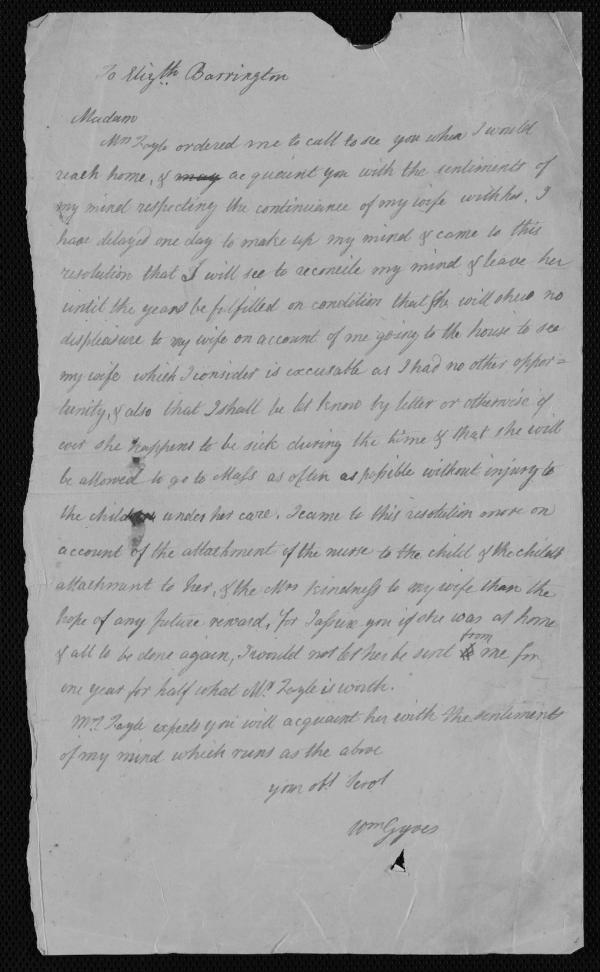 To Elizth. Barrington
Madam
Mrs Zayle ordered me to call to see you when I would
reach home, & may acquaint you with the sentiments of
my mind respecting the continuance of my wife with her. I
have delayed one day to make up my mind & came to this
resolution that I will see to reconcile my mind & leave her
until the years be fulfilled on condition that she will shew no
displeasure to my wife on account of me going to the house to see
my wife which I consider is excusable as I had no other oppor=
tunity, & also that I shall be let know by letter or otherwise if
ever she happens to be sick during the time & that she will
be allowed to go to Mass as often as possible without injury to
the children under her care. I came to this resolution more on
account of the attachment of the nurse to the child & the childs
attachment to her, & the Mrs kindness to my wife than the
hope of any future reward, for I assure you if she was at home
& all to be done again, I would not let her be sent from me for
one year for half what Mr. Zayle is worth.
Mrs. Zayle expects you will acquaint her with the sentiments
of my mind which runs as the above
your obt Servt
Wm Gyves